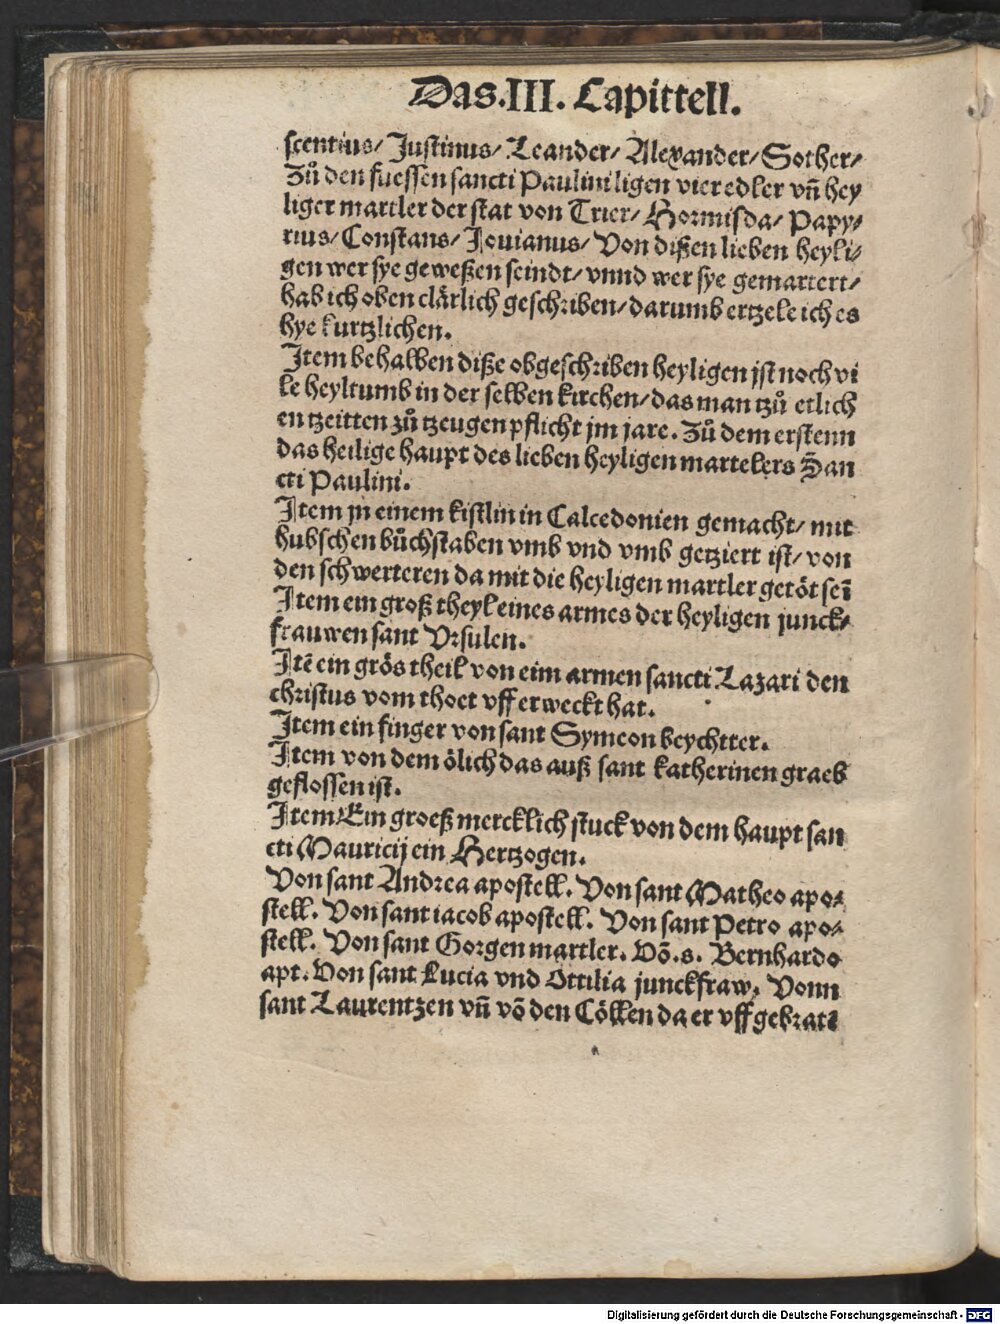 Das.III. Capittell.
scentius/ Justinus/ Leander/ Alexander/ Sother/
Zů den fuessen sancti Paulini ligen vier edler vñ hey
liger martler der stat von Trier/ Hormisda/ Papy/
rius/ Constans/ Jouianus/ Von dißen lieben heyli/
gen wer sye geweßen seindt/ vnnd wer sye gemartert/
hab ich oben clärlich geschriben/ darumb ertzele ich es
hye kurtzlichen.
Item behalben diße obgeschriben heyligen jst noch vi
le heyltumb in der selben kirchen/ das man tzů etlich
en tzeitten zů tzeugen pflicht jm jare. Zů dem erstenn
das heilige haupt des lieben heyligen martelers San
cti Paulini.
Item jn einem kistlin in Calcedonien gemacht/ mit
hubschen bůchstaben vmb vnd vmb getziert ist/ von
den schwerteren da mit die heyligen martler getöt seī
Item ein groß theyl eines armes der heyligen junck/
frauwen sant Vrsulen.
Itē ein grös theil von eim armen sancti Lazari den
christus vom thoet vff erweckt hat.
Item ein finger von sant Symeon beychtter.
Item von dem ölich das auß sant katherinen graeb
geflossen ist.
Item Ein groeß mercklich stuck von dem haupt san
cti Mauricij ein Hertzogen.
Von sant Andrea apostell. Von sant Matheo apo/
stell. Von sant iacob apostell. Von sant Petro apo/
stell. Von sant Gorgen martler. Vō.s. Bernhardo
apt. Von sant Lucia vnd Ottilia junckfraw. Vonn
sant Laurentzen vñ vō den Cöllen da er vff gebrate
Digitalisierung gefördert durch die Deutsche Forschungsgemeinschaft - DFG